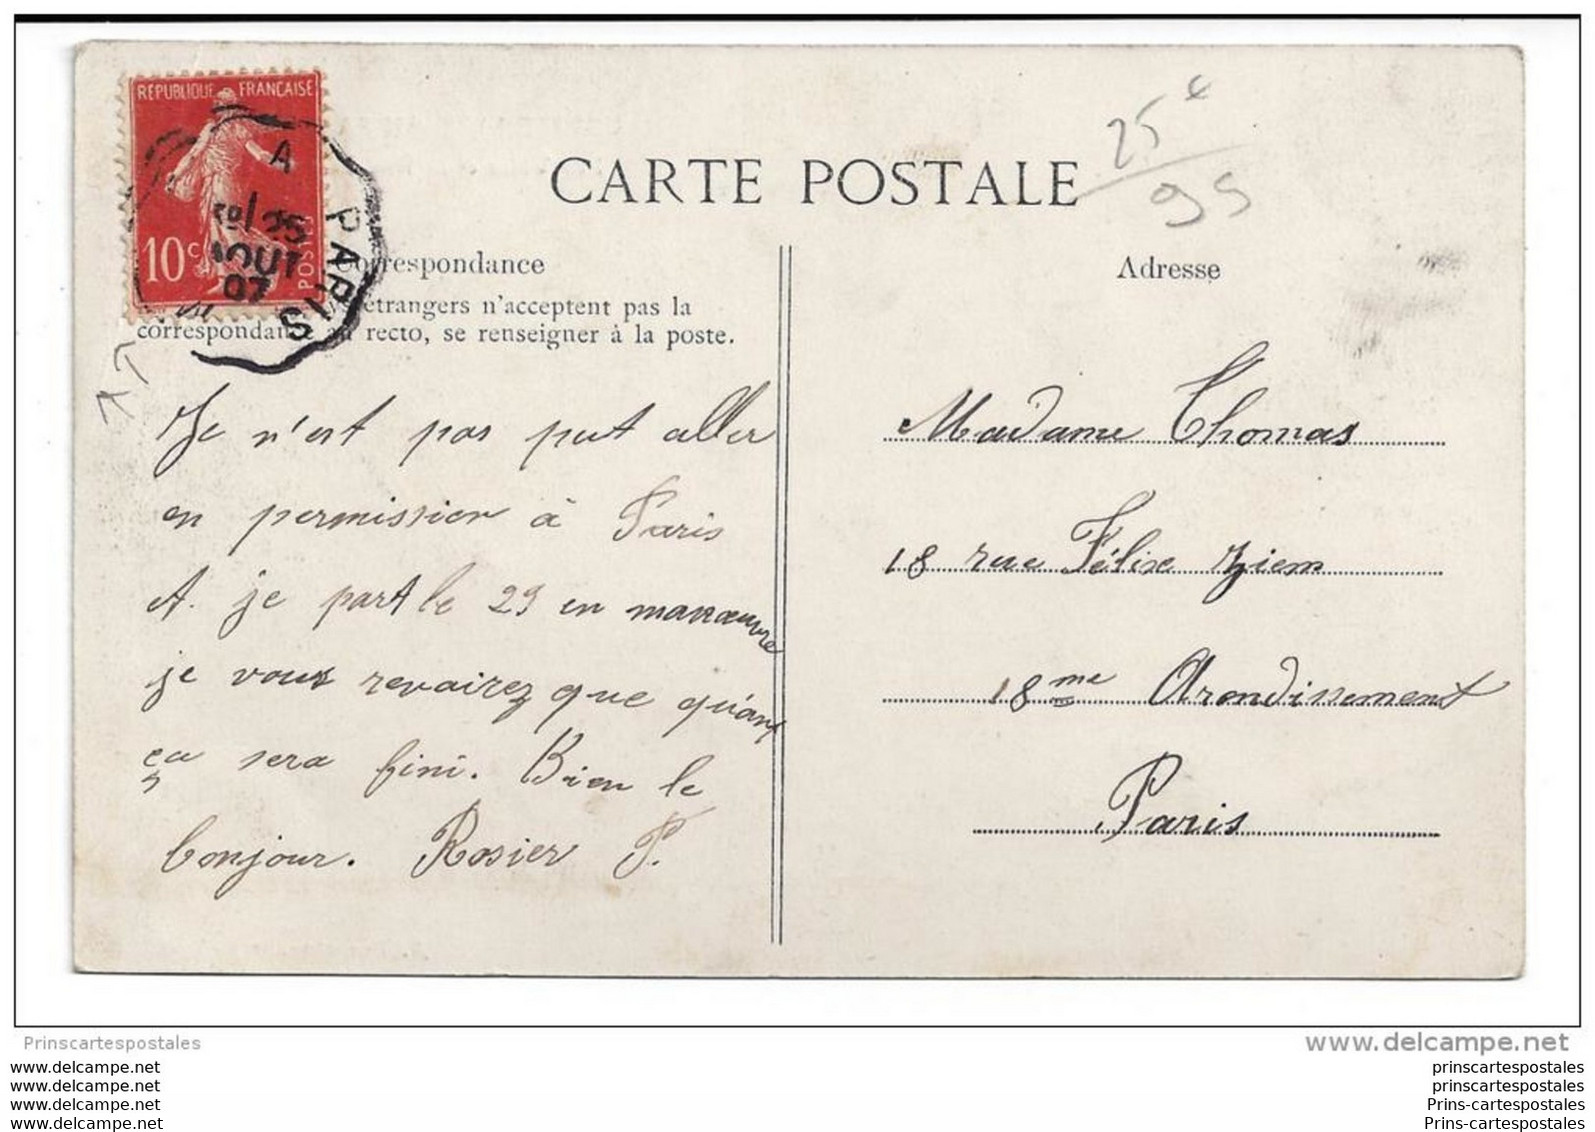 REPUBLIQUE FRANÇAISE
10c
POSTES
A
25
AOUT
07
PARIS
CARTE POSTALE
25 €
95
Correspondance
étrangers n'acceptent pas la
correspondance au recto, se renseigner à la poste.
Je n'est pas put aller
en permission à Paris
et. je part le 29 en manœuvre
je vous revairez que quant
ça sera fini. Bien le
bonjour. Rosier P.
Adresse
Madame Thomas
18 rue Félix Ziem
18me Arondissement
Paris
Prinscartespostales
www.delcampe.net
www.delcampe.net
www.delcampe.net
www.delcampe.net
www.delcampe.net
prinscartespostales
prinscartespostales
Prins-cartespostales
Prins-cartespostales